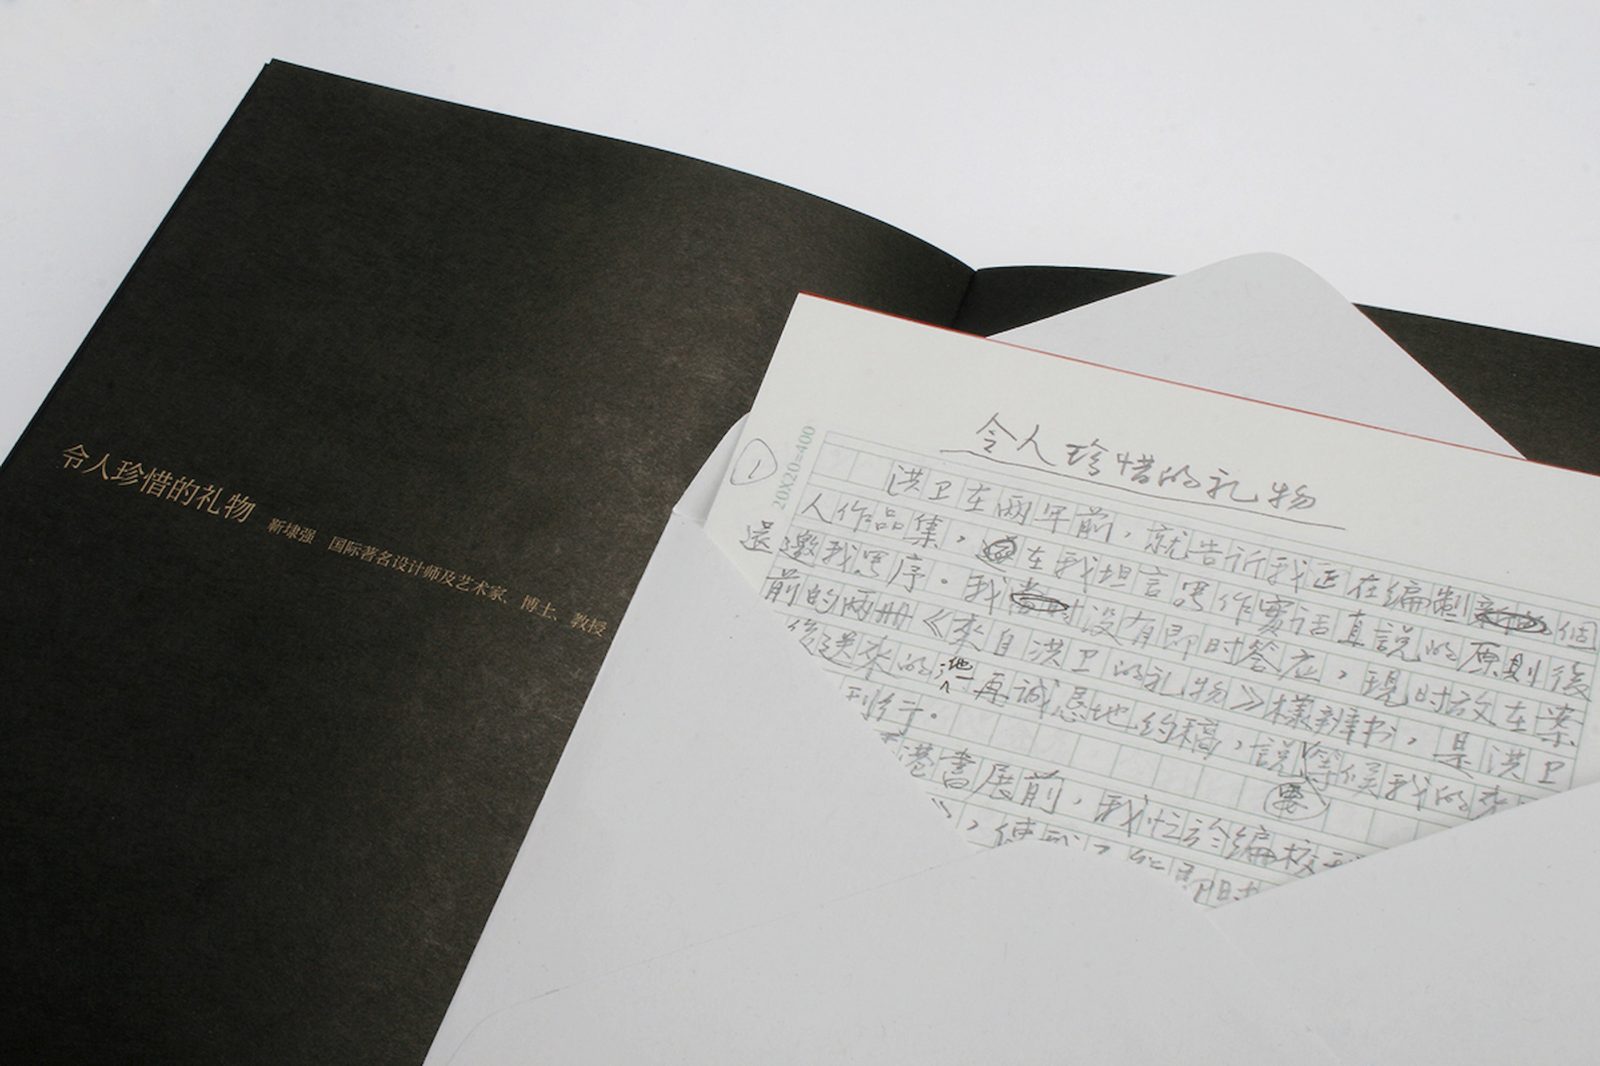 令人珍惜的礼物 靳埭强 国际著名设计师及艺术家、博士、教授
1
20X20=400
令人珍惜的礼物
洪卫在两年前，就告訴我正在編製個
人作品集，在我坦言写作實话真説的原則後
還邀我写序。我没有即时答应，現时放在案
前的两册《来自洪卫的礼物》樣辦书，是洪卫
送来的，他再诚恳地約稿，説要等候我的
港書展前，我忙於編校